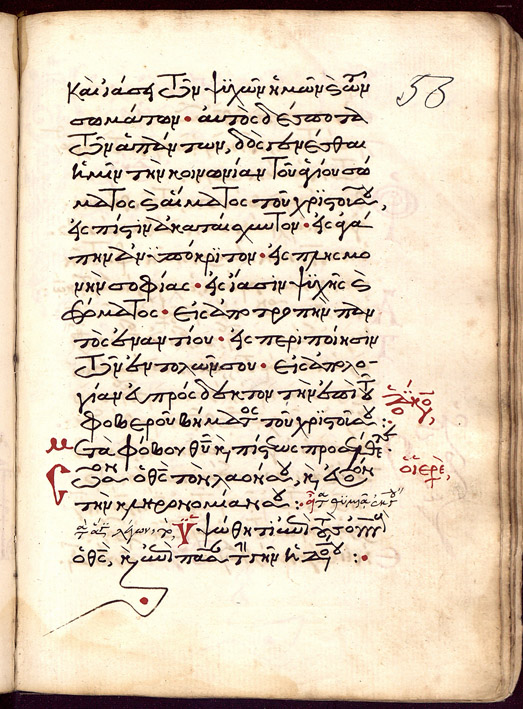 Καὶ ἰάσῃ τῶν ψυχῶν ἡμῶν ϗ τῶν
σωμάτων· αὐτὸς δέσποτα
τῶν ἁπάντων, δὸς γενέσθαι
ἡμῖν τὴν κοινωνίαν τοῦ ἁγίου σώ
ματος ϗ αἵματος τοῦ χριστοῦ σου,
εἰς πίστιν ἀκαταίσχυντον· εἰς ἀγά
πην ἀνυπόκριτον· εἰς πλησμο
νὴν σοφίας· εἰς ἴασιν ψυχῆς ϗ
σώματος· εἰς ἀποτροπὴν παν
τὸς ἐναντίου· εἰς περιποίησιν
τῶν ἐντολῶν σου· εἰς ἀπολο-
γίαν εὐπρόσδεκτον τὴν ἐπὶ τοῦ
φοβεροῦ βήματος τοῦ χριστοῦ σου
Μετὰ φόβου θυ ϗ πίστεως προσέλθετε
Σῶσον ὁ θς τὸν λαόν σου, ϗ εὐλόγησον
τὴν κληρονομίαν σου
Ὑψώθητι ἐπὶ τοὺς οὐνοὺς
ὁ θς, ϗ ἐπὶ πᾶσαν τὴν γῆν ἡ δόξα σου